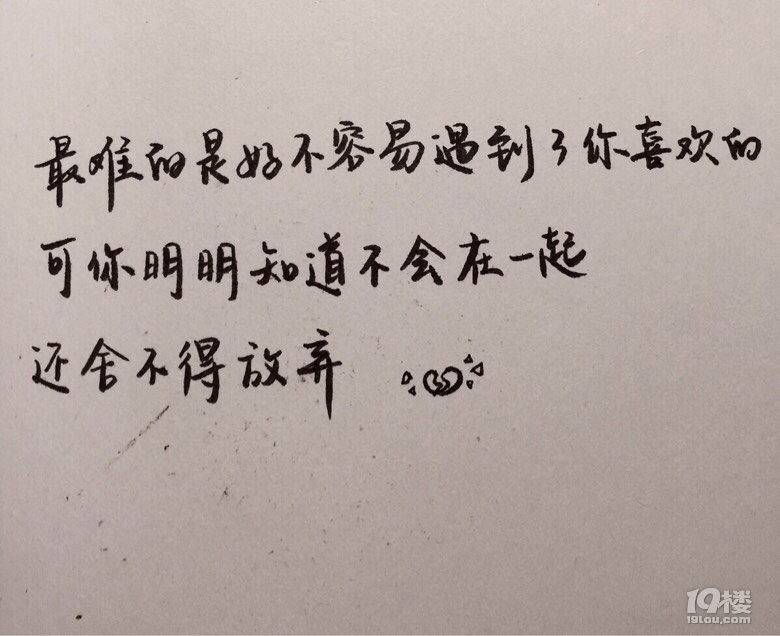 最难的是好不容易遇到了你喜欢的
可你明明知道不会在一起
还舍不得放弃
19楼
19lou.com